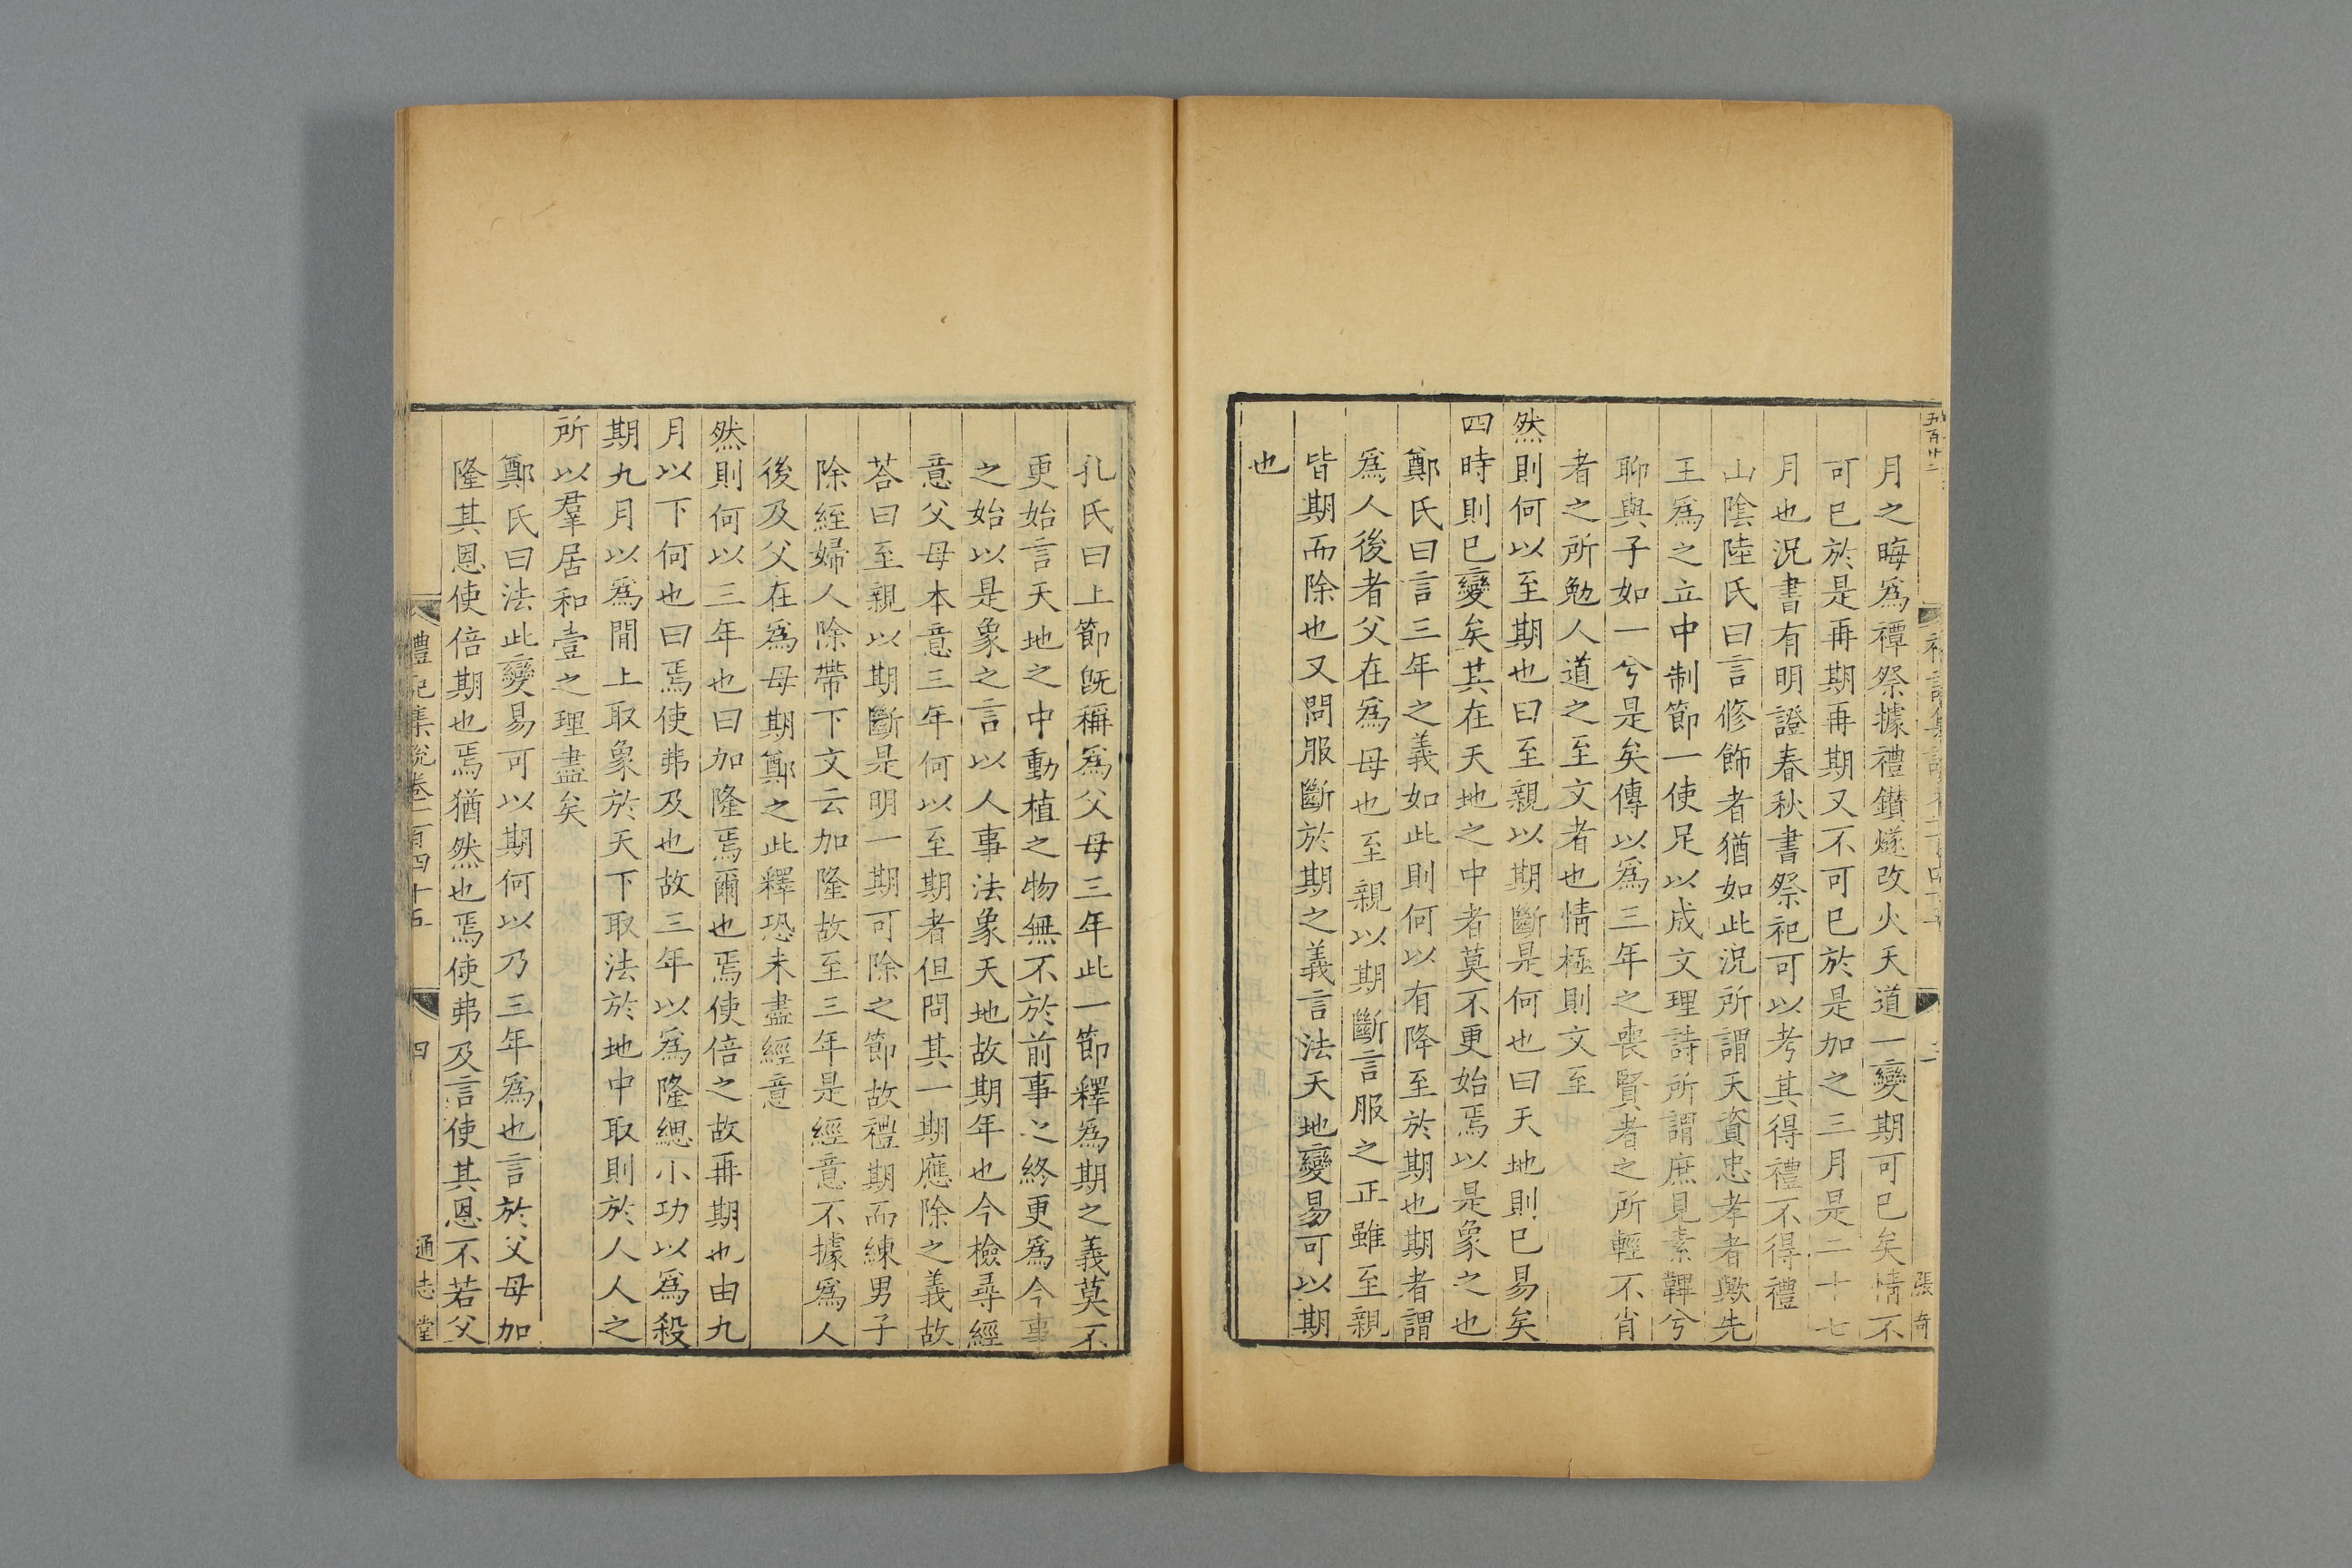 五百廿二
張奇
月之晦爲禫祭據禮鑚燧改火天道一變期可已矣情不
可已於是再期再期又不可已於是加之三月是二十七
月也況書有明證春秋書祭祀可以考其得禮不得禮
山隂陸氏曰言修飾者猶如此況所謂天資忠孝者歟先
王爲之立中制節一使足以成文理詩所謂庶見素韠兮
聊與子如一兮是矣傳以爲三年之喪賢者之所輕不肖
者之所勉人道之至文者也情極則文至
然則何以至期也曰至親以期斷是何也曰天地則已易矣
四時則已變矣其在天地之中者莫不更始焉以是象之也
鄭氏曰言三年之義如此則何以有降至於期也期者謂
爲人後者父在爲母也至親以期斷言服之正雖至親
皆期而除也又問服斷於期之義言法天地變易可以期
也
孔氏曰上節旣稱爲父母三年此一節釋爲期之義莫不
更始言天地之中動植之物無不於前事之終更爲今事
之始以是象之言以人事法象天地故期年也今檢尋經
意父母本意三年何以至期者但問其一期應除之義故
荅曰至親以期斷是明一期可除之節故禮期而練男子
除絰婦人除帶下文云加隆故至三年是經意不據爲人
後及父在爲母期鄭之此釋恐未盡經意
然則何以三年也曰加隆焉爾也焉使倍之故再期也由九
月以下何也曰焉使弗及也故三年以爲隆緦小功以爲殺
期九月以爲閒上取象於天下取法於地中取則於人人之
所以羣居和壹之理盡矣
鄭氏曰法此變易可以期何以乃三年爲也言於父母加
隆其恩使倍期也焉猶然也焉使弗及言使其恩不若父
禮記集說卷一百四十五
四
通志堂